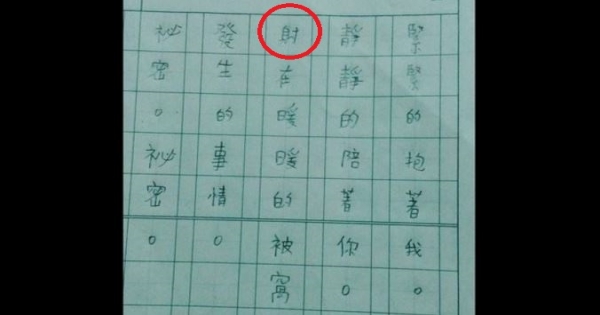 緊緊的抱著我。
靜靜的陪著你。
財在暖暖的被窩
發生的事情。
祕密。祕密。